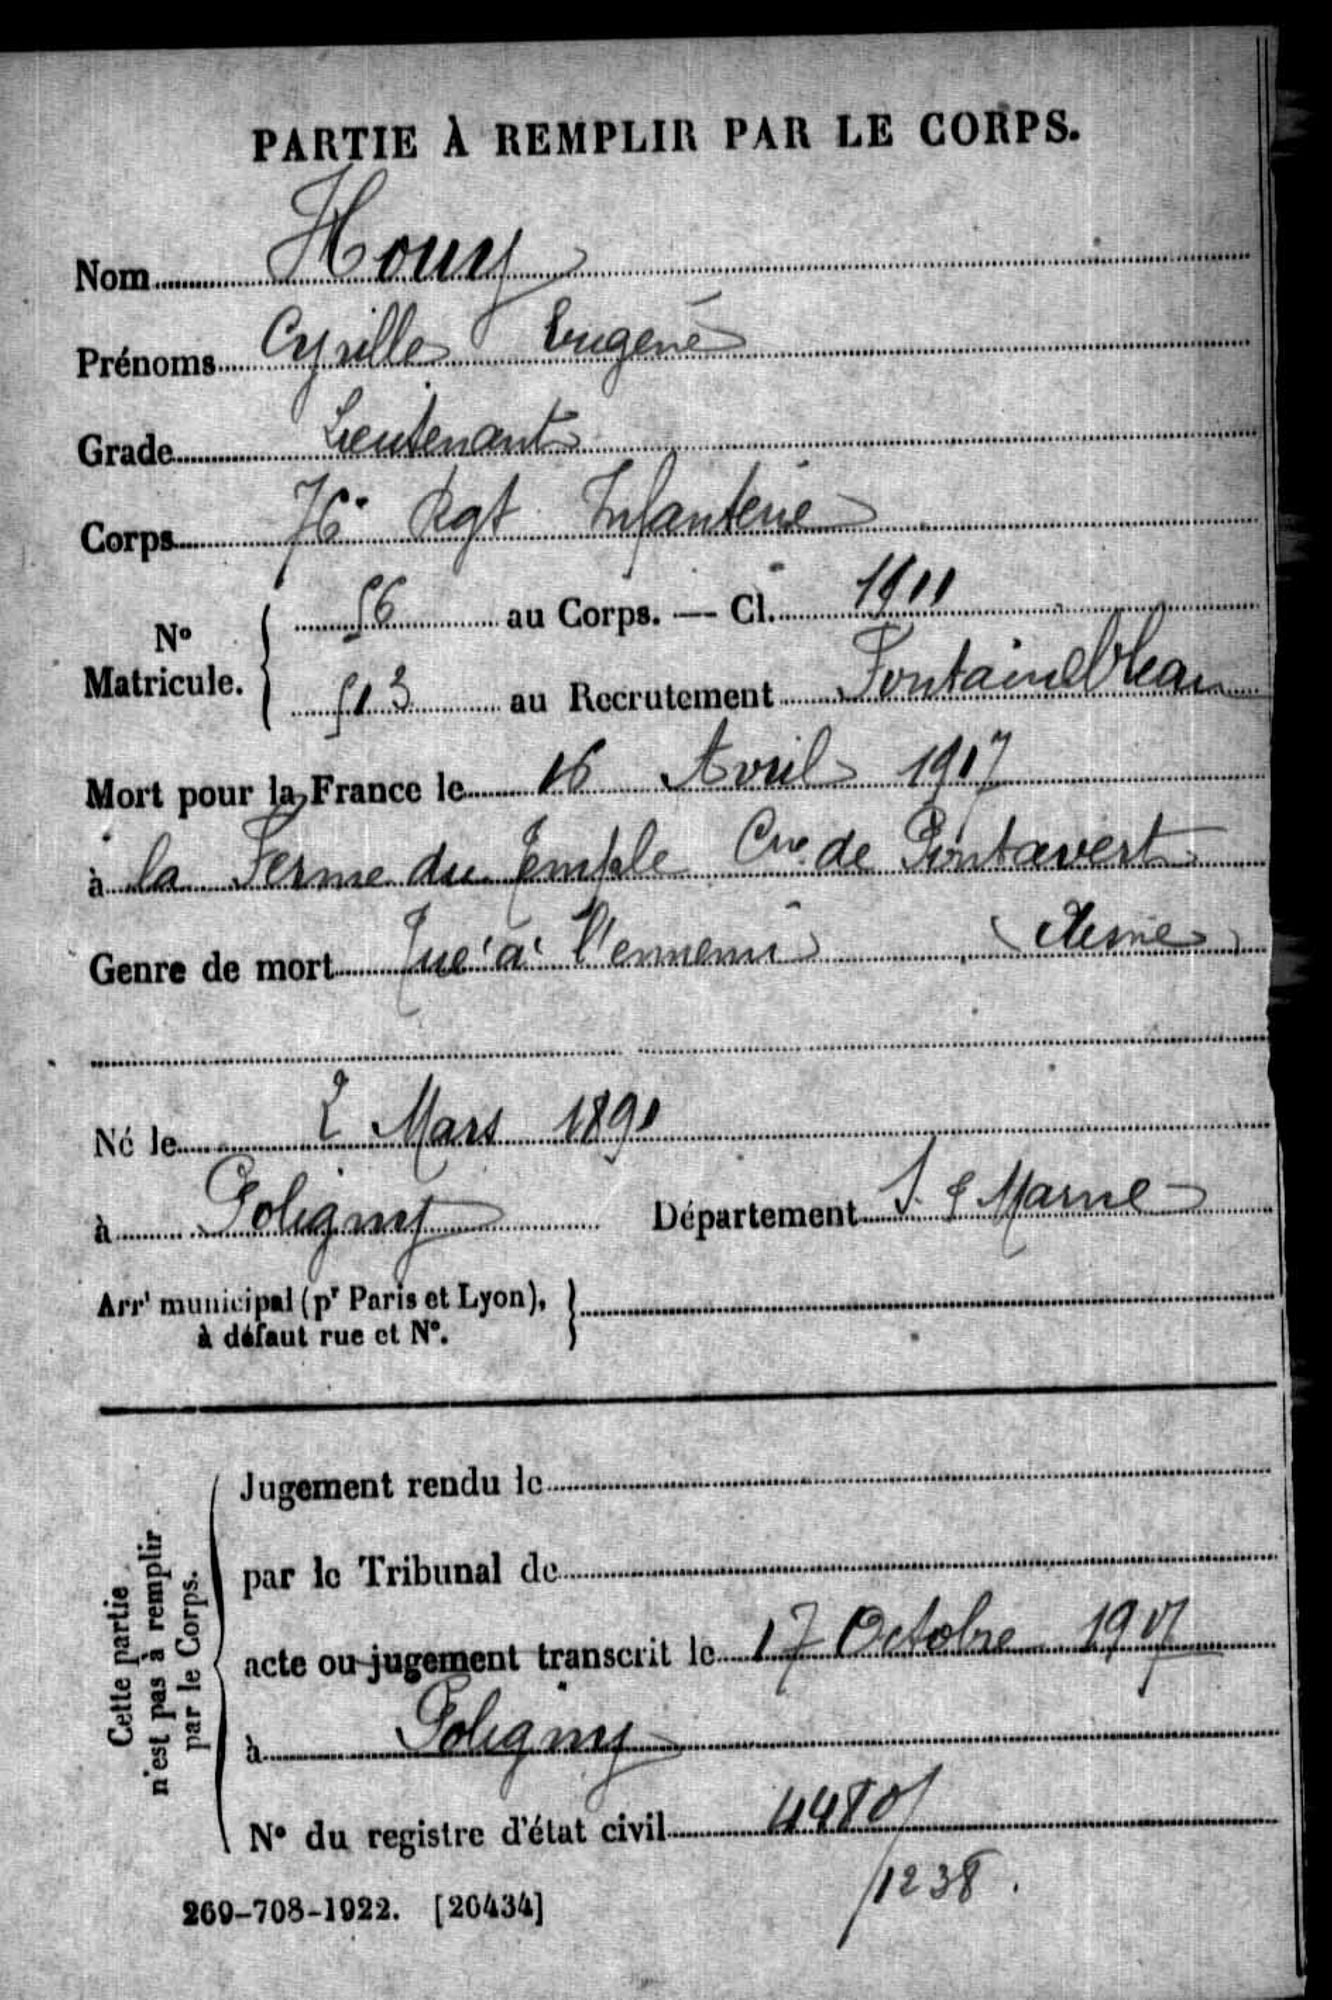 PARTIE À REMPLIR PAR LE CORPS.
Nom Houy
Prénoms Cyrille Eugène
Grade Lieutenant
Corps 76e Rgt Infanterie
No Matricule. 56 au Corps. — Cl. 1911
513 au Recrutement Fontainebleau
Mort pour la France le 16 Avril 1917
à la Ferme du Temple Cne de Pontavert
Genre de mort Tué à l'ennemi (Aisne)
Né le 2 Mars 1891
à Poligny Département S. & Marne
Arrt municipal (pr Paris et Lyon),
à défaut rue et No.
Cette partie
n'est pas à remplir
par le Corps.
Jugement rendu le
par le Tribunal de
acte ou jugement transcrit le 17 Octobre 1917
à Poligny
No du registre d'état civil
1238.
269-708-1922. [26434]